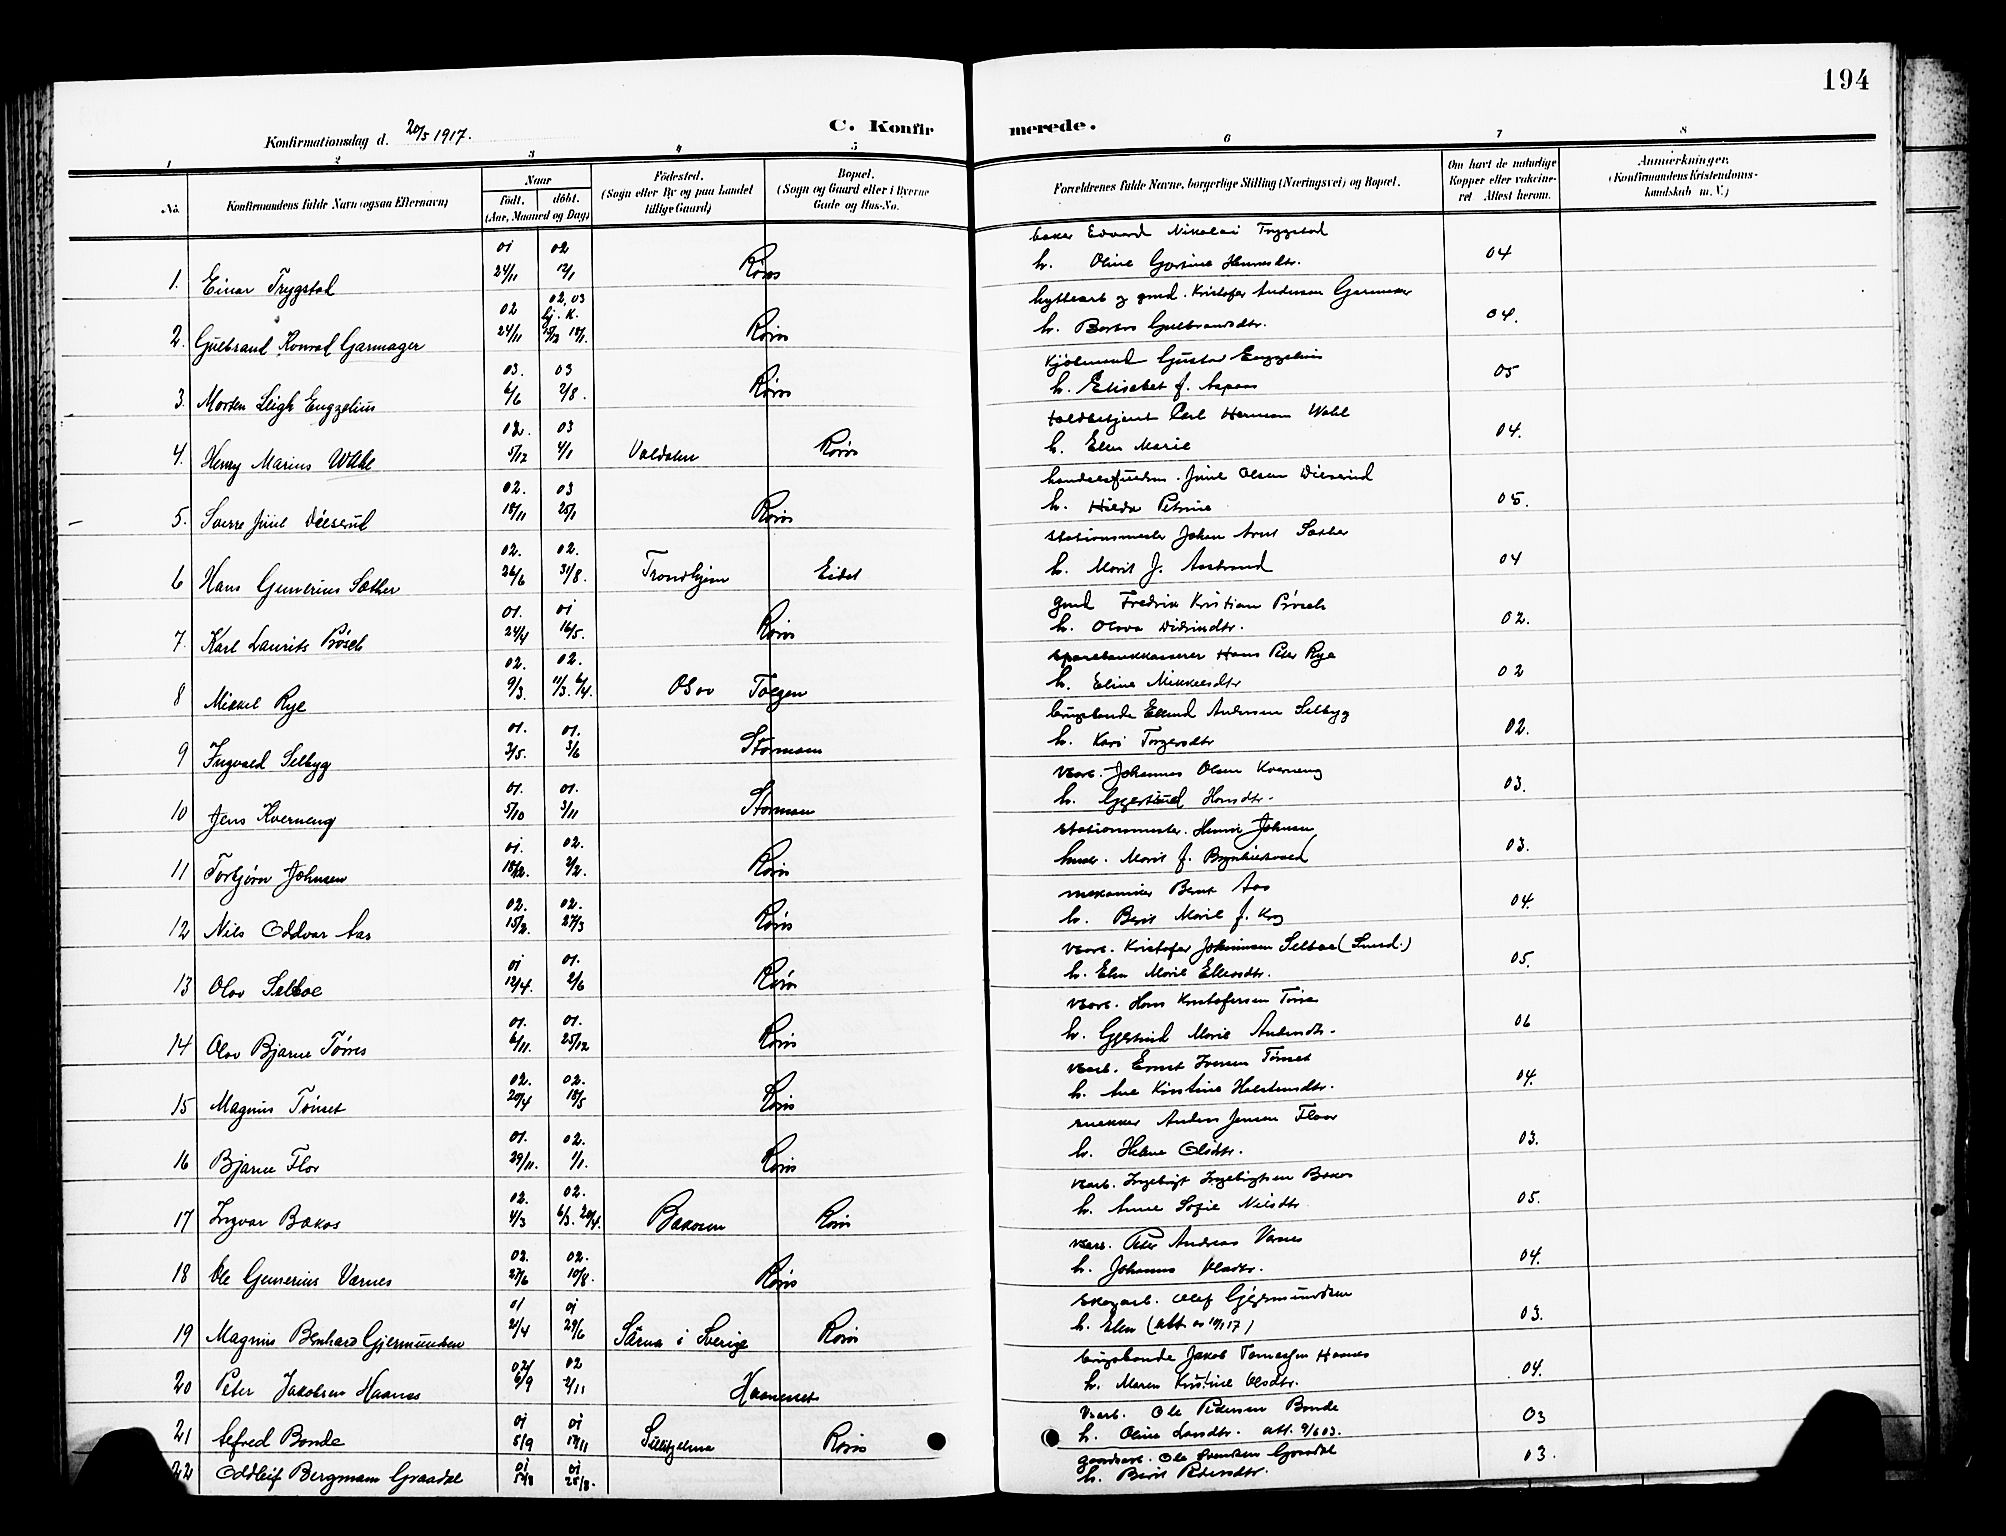 194
Konfirmationsdag d. 20/5 1917.
C. Konfirmerede.
1 2 3 4 5 6 7 8
No.
Konfirmandens fulde Navn (ogsaa Efternavn)
Naar
født. døbt.
(Aar, Maaned og Dag)
Fødested.
(Sogn eller By og paa Landet tillige Gaard)
Bopæl.
(Sogn og Gaard eller i Byerne Gade og Hus-No.
Forældrenes fulde Navne, borgerlige Stilling (Næringsvei) og Bopæl.
Om havt de naturlige Kopper eller vakcineret Attest herom.
Anmærkninger,
(Konfirmandens Kristendomskundskab m. V.)
1. Einar Trygstad 01 24/11 02 12/1 Røros baker Edvard Nikolai Trygstad 04
h. Oline
2. Gulbrand Konrad Garmager 02 24/11 02, 03 hj. k. 18/1 Røros hyttearb og gmd. Kristofer Andersen 04.
h. Gulbrandsdtr.
3. Morten Leigh Engzelius 03. 6/6 03 2/8. Røros kjøbmand Gustav Engzelius 05
h. Elisabet f. Aspaas
4. Henry Marius Wahl 02. 5/12 03 4/1 Røros toldbetjent Carl Herman Wahl 04.
h. Elen Marie
5. Sverre Juul Dieserud 02. 18/11 03 25/1 Røros Juul Olsen Dieserud 05.
h. Hilda Petrine
6 Hans Gunerius Sæther 02. 26/6 02. 31/8. Trondhjem Eidet stationsmester Johan Arnt Sæther 04
h. Marit J. Aastrand
7. Karl Laurits Prøsch 01. 24/4 01 16/5. Røros gmd Fredrik Kristian Prøsch 02.
h. Olava Didriksdtr.
8 Mikkel Rye 02. 9/3. 02. 11/3. 6/4. Os ov Tolgen sparebankkasserer Hans Peter Rye 02
h. Eline Mikkelsdtr
9 Ingvald Selbyg 01. 3/5. 01. 3/6 Stormoen brugsbonde Ellend Andersen Selbyg 02.
h. Kari Torgersdtr
10 Jens Kverneng 01. 5/10 01. 3/11 Stormoen Johannes Olsen Kverneng 03.
h. Gjertrud Hansdtr.
11 Torbjørn Johnsen 01. 18/12. 02. 2/2. Røros stationsmester. Henrik Johnsen 03.
hust. Marit f.
12 Nils Oddvar Aas 02. 15/2. 02. 27/3 Røros mekaniker Bernt Aas 04.
h. Berit Marie f. Krog
13 Olav Selboe 01 12/4. 01. 2/6 Røros Kristofer Johannesen Selboe (Sund.) 05.
h. Elen Marie Ellevsdtr.
14 Olav Bjarne Tørres 01. 6/11. 01. 25/12 Røros Hans Kristofersen Tørres 06
h. Gjertrud Marie Andersdtr.
15 Magnus Tønset 02. 20/4 02. 18/5 Røros Ernst Iversen Tønset 04.
h. Ane Kirstine Halstensdtr.
16 Bjarne Flor 01. 29/11. 02. 1/1. Røros snekker Anders Jensen Floor 03.
h. Helene Olsdtr.
17 Ingvar Bakos 02. 4/3 02. 6/3. 20/4. Bakosen Røros Ingebrigt Ingebrigtsen Bakos 05.
h. Anne Sofie Nilsdtr.
18 Ole Gunerius Værnes 02. 27/6 02. 10/8. Røros Peter Andreas Værnes 04.
h. Johanna Olsdtr.
19 Magnus Bernhard Gjermundsen 01 21/4 01 29/6 Särna i Sverige Røros skogarb. Olaf Gjermundsen 03.
h. Elen
20 Peter Jakobsen Haanes 02 6/9 02 2/11 Haaneset brugsbonde Jakob Tomassen Haanes 04.
h. Maren Kirstine Olsdtr.
21 Alfred Bonde 01 5/9 01 Sulitjelma Røros Ole Pedersen Bonde 03
h. Oline Larsdtr. att. 9/6 03.
22 Oddleif Bergmann Graadal 01 01 25/8. gaardarb. Ole Svendsen Graadal 03.
h. Berit Pedersdtr.